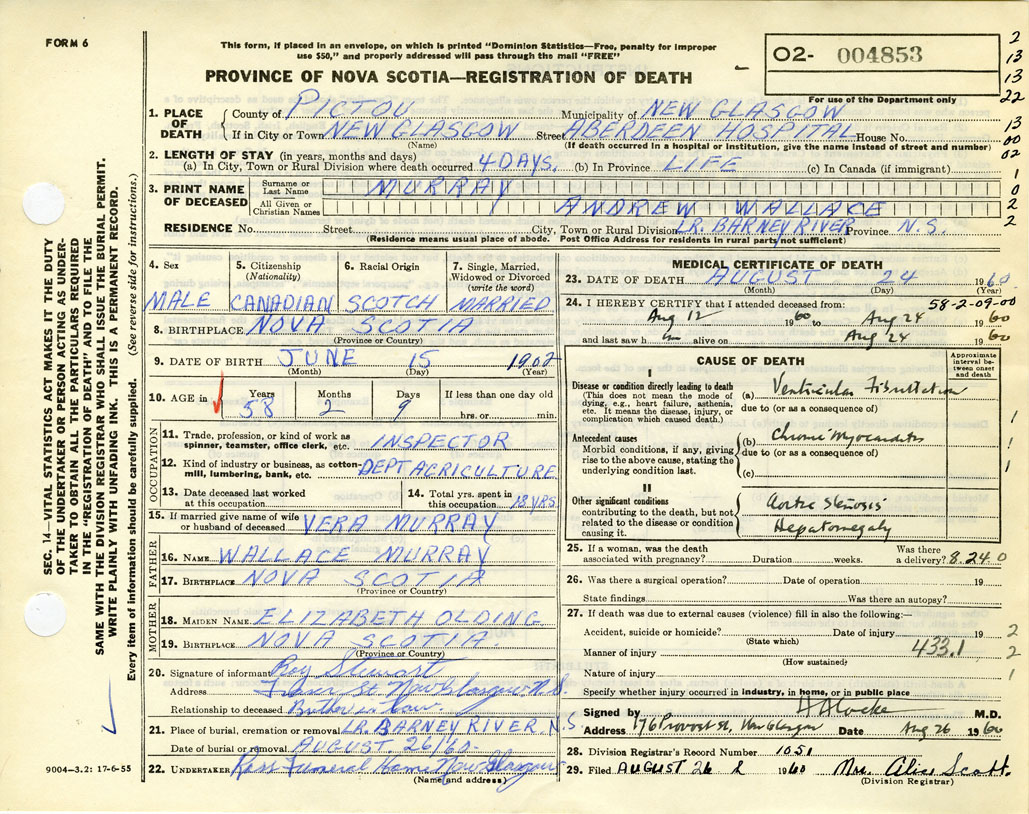 FORM 6
This form, if placed in an envelope, on which is printed "Dominion Statistics—Free, penalty for improper
use $50," and properly addressed will pass through the mail "FREE"
PROVINCE OF NOVA SCOTIA—REGISTRATION OF DEATH
O2- 004853
For use of the Department only
2
13
13
22
13
00
02
1
0
2
2
SEC. 14—VITAL STATISTICS ACT MAKES IT THE DUTY
OF THE UNDERTAKER OR PERSON ACTING AS UNDER-
TAKER TO OBTAIN ALL THE PARTICULARS REQUIRED
IN THE "REGISTRATION OF DEATH" AND TO FILE THE
SAME WITH THE DIVISION REGISTRAR WHO SHALL ISSUE THE BURIAL PERMIT.
WRITE PLAINLY WITH UNFADING INK. THIS IS A PERMANENT RECORD.
Every item of information should be carefully supplied. (See reverse side for instructions.)
1. PLACE OF DEATH
County of PICTOU Municipality of NEW GLASGOW
If in City or Town NEW GLASGOW Street ABERDEEN HOSPITAL House No.
(Name) (If death occurred in a hospital or institution, give the name instead of street and number)
2. LENGTH OF STAY (in years, months and days)
(a) In City, Town or Rural Division where death occurred 4 DAYS. (b) In Province LIFE (c) In Canada (if immigrant)
3. PRINT NAME OF DECEASED
Surname or Last Name MURRAY
All Given or Christian Names ANDREW WALLACE
RESIDENCE No. Street City, Town or Rural Division LR. BARNEY RIVER Province N.S.
(Residence means usual place of abode. Post Office Address for residents in rural parts not sufficient)
4. Sex 5. Citizenship (Nationality) 6. Racial Origin 7. Single, Married, Widowed or Divorced (write the word)
MALE CANADIAN SCOTCH MARRIED
8. BIRTHPLACE NOVA SCOTIA
(Province or Country)
9. DATE OF BIRTH JUNE 15 1902
(Month) (Day) (Year)
10. AGE in Years Months Days If less than one day old
58 2 9 hrs. or min.
OCCUPATION
11. Trade, profession, or kind of work as
spinner, teamster, office clerk, etc. INSPECTOR
12. Kind of industry or business, as cotton-
mill, lumbering, bank, etc. DEPT AGRICULTURE
13. Date deceased last worked
at this occupation
14. Total yrs. spent in
this occupation 18 YRS
15. If married give name of wife
or husband of deceased VERA MURRAY
FATHER
16. NAME WALLACE MURRAY
17. BIRTHPLACE NOVA SCOTIA
(Province or Country)
MOTHER
18. MAIDEN NAME ELIZABETH OLDING
19. BIRTHPLACE NOVA SCOTIA
(Province or Country)
20. Signature of informant Roy Stewart
Address Fraser St. New Glasgow N.S.
Relationship to deceased Brother in law.
21. Place of burial, cremation or removal LR. BARNEY RIVER. N.S
Date of burial or removal AUGUST 26/60
22. UNDERTAKER Ross Funeral Home New Glasgow
(Name and address)
9004—3.2: 17-6-55
MEDICAL CERTIFICATE OF DEATH
23. DATE OF DEATH AUGUST 24 1960
(Month) (Day) (Year)
58-2-09-00
24. I HEREBY CERTIFY that I attended deceased from:
Aug 12 1960 to Aug 24 1960
and last saw h im alive on Aug 24 1960
CAUSE OF DEATH
Approximate interval between onset and death
I
Disease or condition directly leading to death
(This does not mean the mode of dying, e.g., heart failure, asthenia, etc. It means the disease, injury, or complication which caused death.)
(a) Ventricular Fibrillation
due to (or as a consequence of)
1
Antecedent causes
Morbid conditions, if any, giving rise to the above cause, stating the underlying condition last.
(b) Chronic Myocarditis
due to (or as a consequence of)
1
(c)
1
II
Other significant conditions
contributing to the death, but not related to the disease or condition causing it.
Aortic Stenosis
Hepatomegaly
25. If a woman, was the death
associated with pregnancy? Duration weeks. Was there
a delivery? 8.24.0
26. Was there a surgical operation? Date of operation 19
State findings Was there an autopsy?
27. If death was due to external causes (violence) fill in also the following:—
Accident, suicide or homicide? Date of injury 19 2
(State which)
Manner of injury 433.1 2
(How sustained)
Nature of injury 1
Specify whether injury occurred in industry, in home, or in public place
Signed by M.D.
Address 176 Provost St, New Glasgow Date Aug 26 1960
28. Division Registrar's Record Number 1051
29. Filed AUGUST 26 1960 Mrs. Alice Scott.
(Division Registrar)